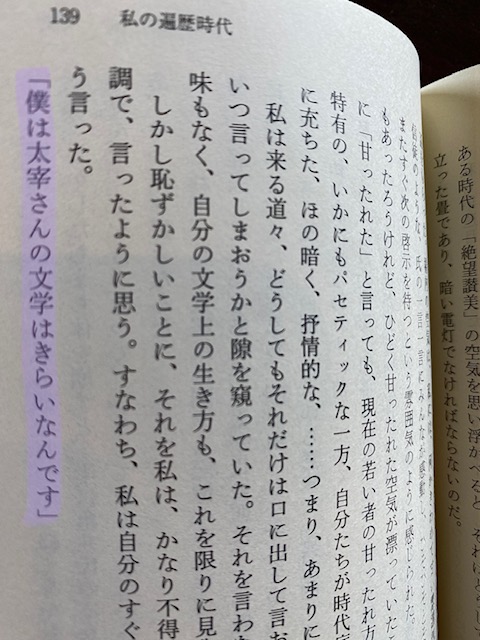 139 私の遍歴時代
ある時代の「絶望讃美」の空気を思い浮かべると
立った畳であり、暗い電灯でなければならないのだ。
またすぐ次の啓示を待つという雰囲気のように感じられた。
もあったろうけれど、ひどく甘ったれた空気が漂っていた
に「甘ったれた」と言っても、現在の若い者の甘ったれ方
特有の、いかにもパセティックな一方、自分たちが時代
に充ちた、ほの暗く、抒情的な、……つまり、あまりに
私は来る道々、どうしてもそれだけは口に出して言お
いつ言ってしまおうかと隙を窺っていた。それを言わ
味もなく、自分の文学上の生き方も、これを限りに見
しかし恥ずかしいことに、それを私は、かなり不得
調で、言ったように思う。すなわち、私は自分のすぐ
う言った。
「僕は太宰さんの文学はきらいなんです」